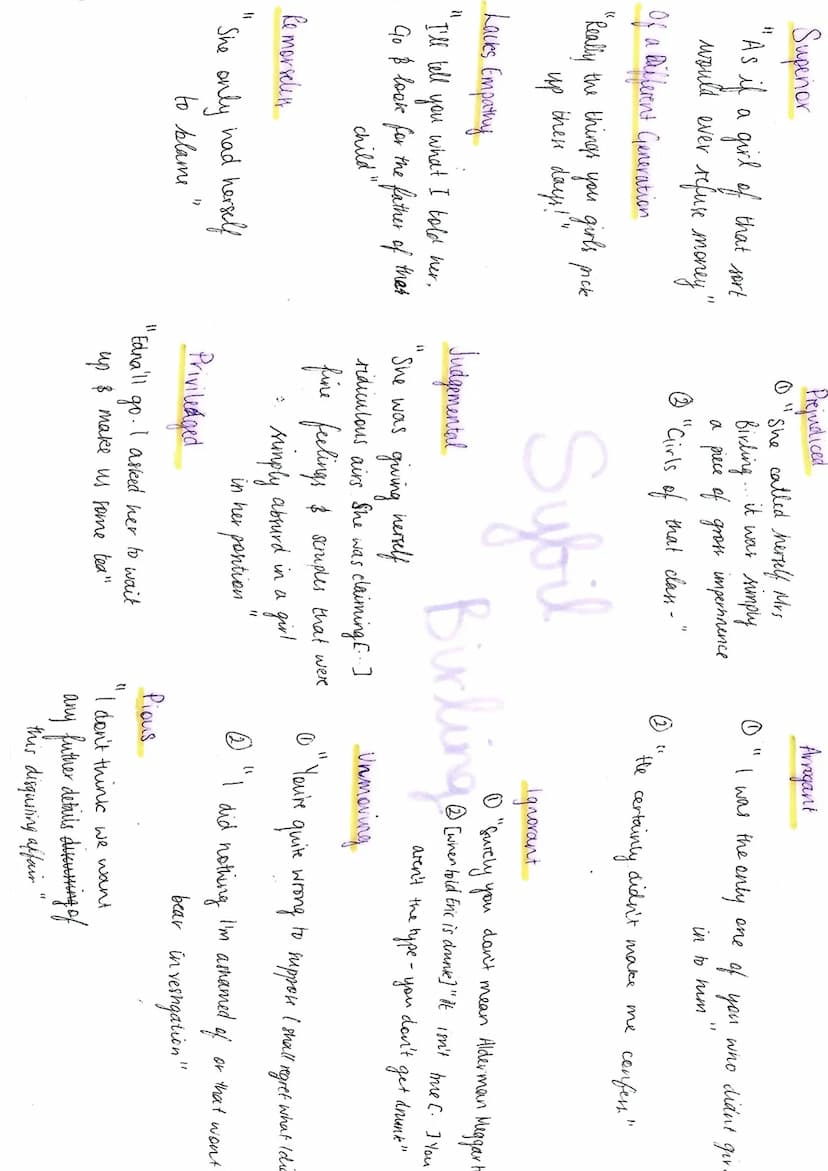 Superior
"As if a girl of that sort
would ever refuse money"
Of a Different Generation
"Really the things you girls pick
up these days!"
Lacks Empathy
"I'll tell you what I told her.
Go & look for the father of that
child"
Remorseless
"She only had herself
to blame"
Prejudiced
① "She called herself Mrs
Birling... it was simply
a piece of gross impertinence
② "Girls of that class-"
Sybil
Birling
Judgemental
"She was giving herself
ridiculous airs She was claiming [...]
fine feelings & scruples that were
simply absurd in a girl
in her position"
Priviledged
"Edna'll go. I asked her to wait
up & make us some tea"
Arrogant
① "I was the only one of you who didnt giv
in to him"
② "He certainly didn't make me confess"
Ignorant
① "Surely you don't mean Alderman Meggart
② [when told Eric is drunk] "It isn't true [..] You
aren't the type - you don't get drunk"
Unmoving
① "You're quite wrong to suppose I shall regret what I di
② "I did nothing I'm ashamed of or that wont
bear investigation"
Pious
"I don't think we want
any futher details of
this disgusting affair"